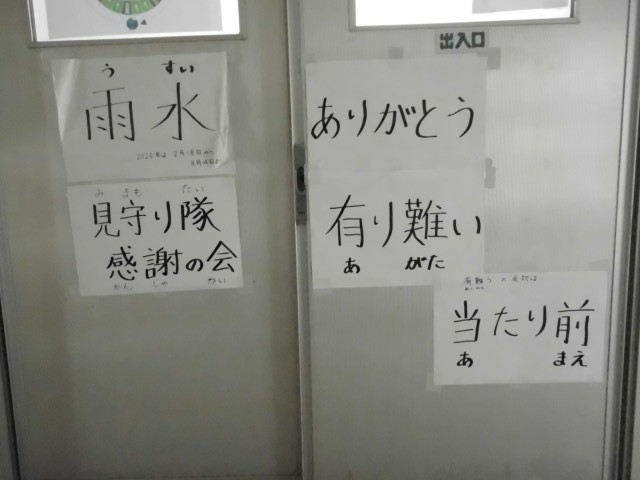 うすい
雨水
2025年は2月18日から
3月4日
みまもたい
見守り隊
感謝の会
かんしゃかい
出入口
ありがとう
有り難い
あがた
有難うの反対は
当たり前
あまえ